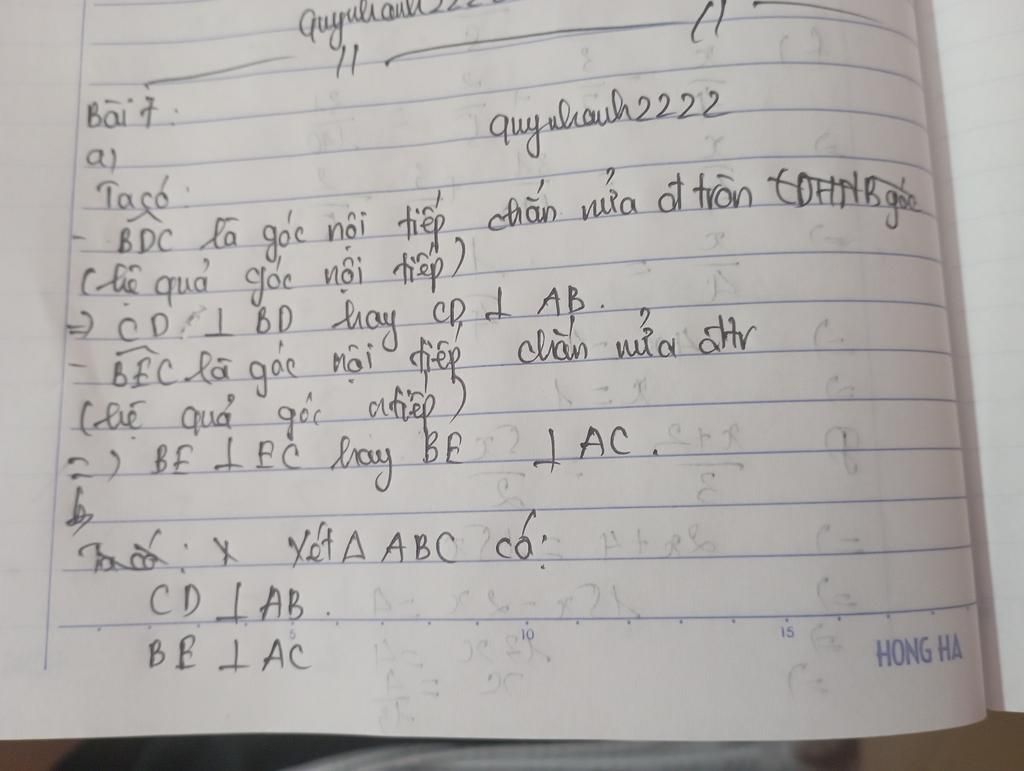 quynhanh2222
Bài 7:
quynhanh2222
a)
Ta có:
- BDC là góc nội tiếp chắn nửa đ tròn
(hệ quả góc nội tiếp)
=> CD ⊥ BD hay CD ⊥ AB.
- BEC là góc nội tiếp chắn nửa đtr
(hệ quả góc ntiếp)
=> BE ⊥ EC hay BE ⊥ AC.
b,
Ta có: x Xét Δ ABC có:
CD ⊥ AB.
BE ⊥ AC
5 10 15
HONG HA